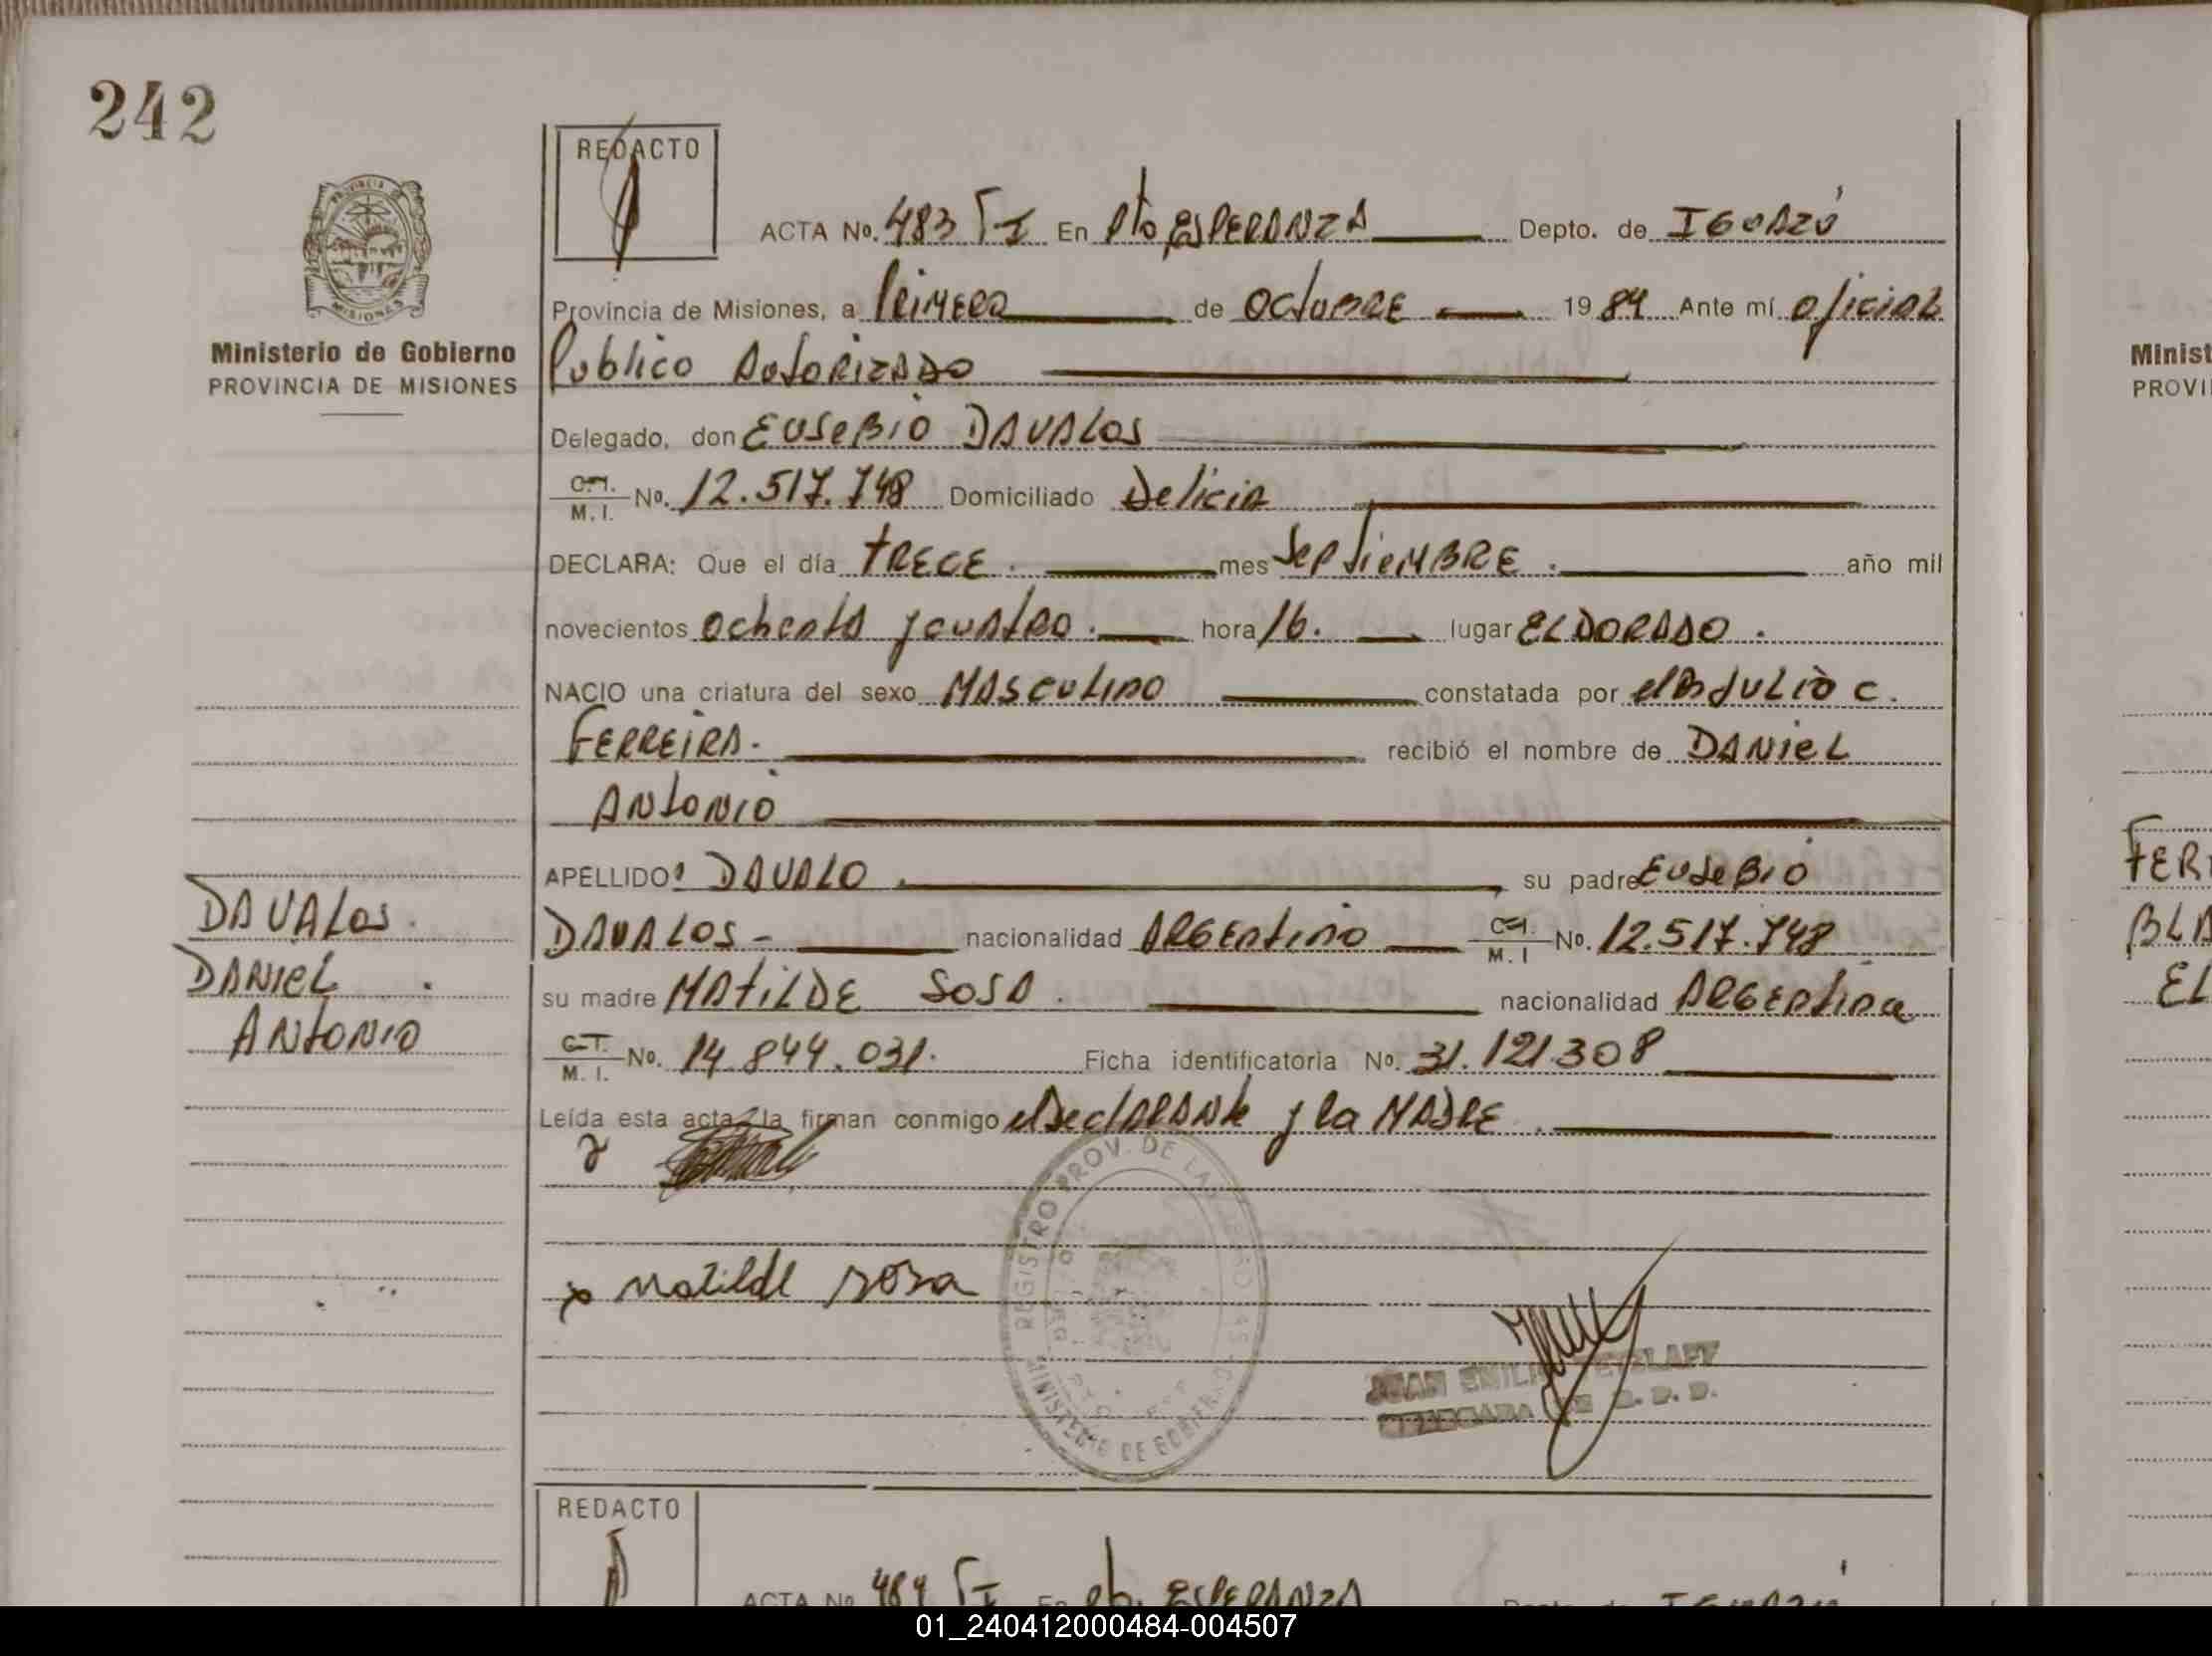 242
REDACTO
PROVINCIA DE
MISIONES
Ministerio de Gobierno
PROVINCIA DE MISIONES
ACTA No. 483 T-I En Pto ESPERANZA Depto. de IGUAZÚ
Provincia de Misiones, a PRIMERO de OCTUBRE 1984 Ante mí oficial
Publico AUTORIZADO
Delegado, don EUSEBIO DAVALOS
C.I. M.I. No. 12.517.748 Domiciliado Delicia
DECLARA: Que el día TRECE. mes SEPTIEMBRE. año mil
novecientos ochenta y cuatro. hora 16. lugar ELDORADO.
NACIO una criatura del sexo MASCULINO constatada por el Dr JULIO C.
FERREIRA. recibió el nombre de DANIEL
ANTONIO
APELLIDO: DAVALO. su padre EUSEBIO
DAVALOS - nacionalidad ARGENTINO C.I. M.I No. 12.517.748
su madre MATILDE SOSA. nacionalidad ARGENTINA
C.I. M.I. No. 14.844.031. Ficha identificatoria No. 31.121.308
Leída esta acta, la firman conmigo el DeclARANte y la MADRE.
x Matilde sosa
REGISTRO PROV. DE LAS PERSONAS
MINISTERIO DE GOBIERNO
JUAN
DAVALOS.
DANIEL.
ANTONIO
REDACTO
ACTA No 484 T-I En Pto. ESPERANZA Depto. de IGUAZÚ
Minist
PROVI
FER
BLA
EL
01_240412000484-004507